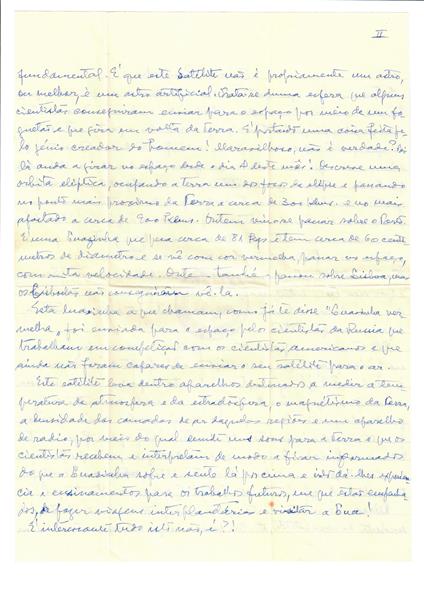 II
fundamental. É que este satélite não é propriamente um astro,
ou melhor, é um astro artificial. Trata-se duma esfera que alguns
cientistas conseguiram enviar para o espaço por meio de um fo-
guetão e que gira em volta da terra. É portanto uma coisa feita pe-
lo génio creador do homem! Maravilhoso, não é verdade?
lá anda a girar no espaço desde o dia 4 deste mês! Descreve uma
orbita elíptica, ocupando a terra um dos focos da elipse e passando
no ponto mais proximo da Terra a cerca de 300 klms. e no mais
afastado a cerca de 900 klms. Ontem vimo-lo passar sobre o Porto.
É uma luazinha que pesa cerca de 81 kgs e tem cerca de 60 centí-
metros de diametro e se vê com cor vermelha, passar no espaço,
com muita velocidade. Ontem também passou sobre Lisboa, mas
os Lisboetas não conseguiram vê-la.
Esta luazinha a que chamam, como já te disse "Luazinha ver-
melha", foi enviada para o espaço pelos cientistas da Russia que
trabalham em competição com os cientistas americanos e que
ainda não foram capazes de enviar o seu satélite para o ar.
Este satélite leva dentro aparelhos destinados a medir a tem-
peratura da atmosfera e da estratosfera, o magnetismo da terra,
a densidade das camadas de ar daquelas regiões e um aparelho
de radio, por meio do qual emite uns sons para a terra e que os
cientistas recebem e interpretam de modo a ficar informados
do que a luazinha sofre e sente lá por cima e isto dá-lhes experien-
cia e ensinamentos para os trabalhos futuros, em que estão empenha-
dos, de fazer viagens interplanetárias e visitar a Lua!
É interessante tudo isto não, é?!